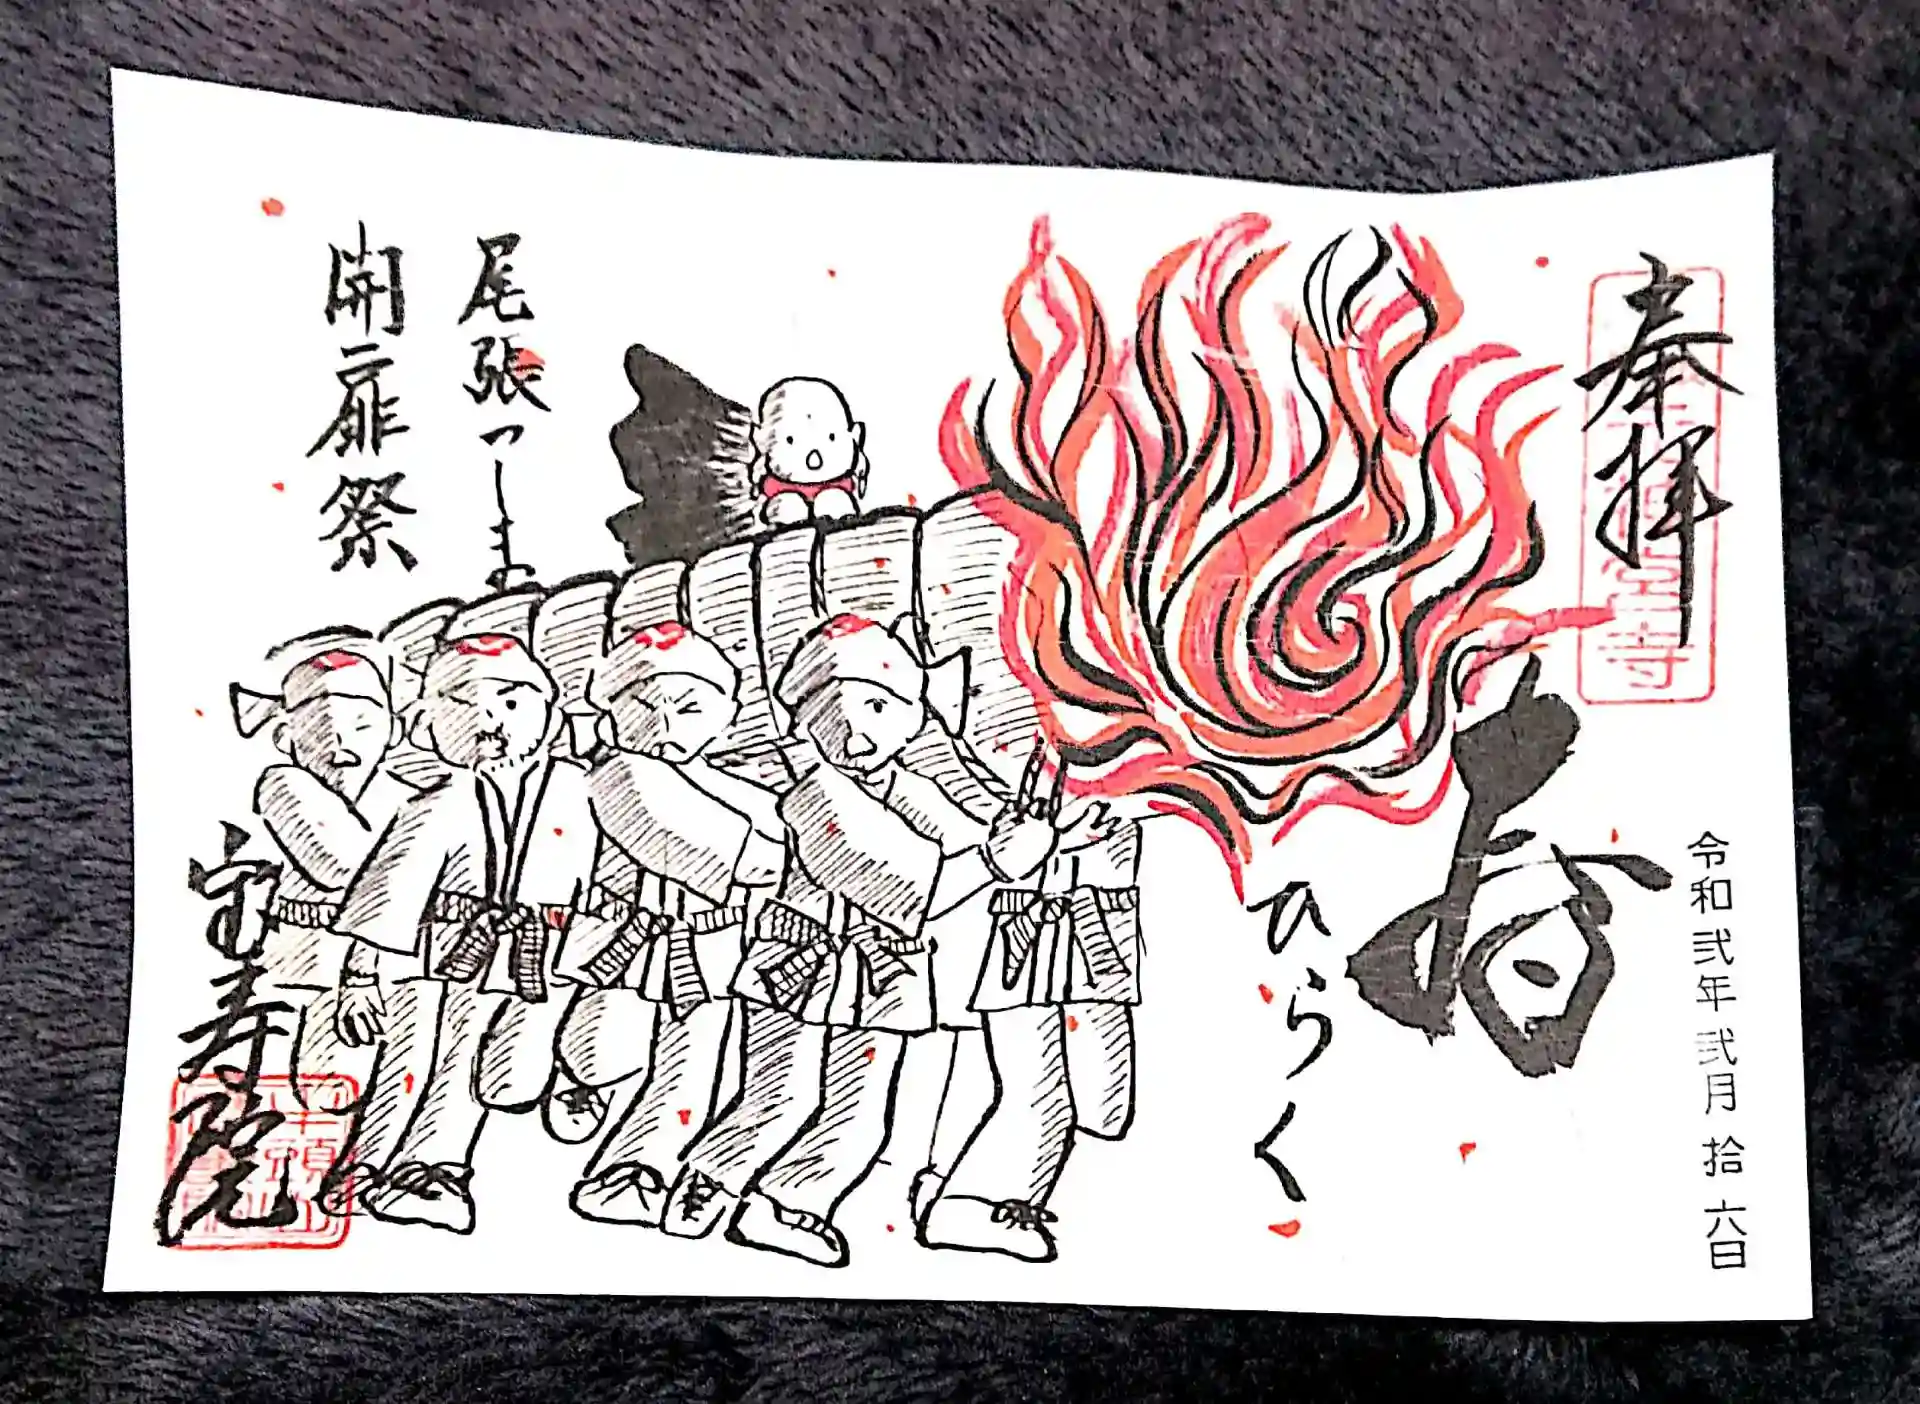 奉拝
令和弐年弐月拾六日
春
ひらく
尾張つしまの
開扉祭
宝寿院